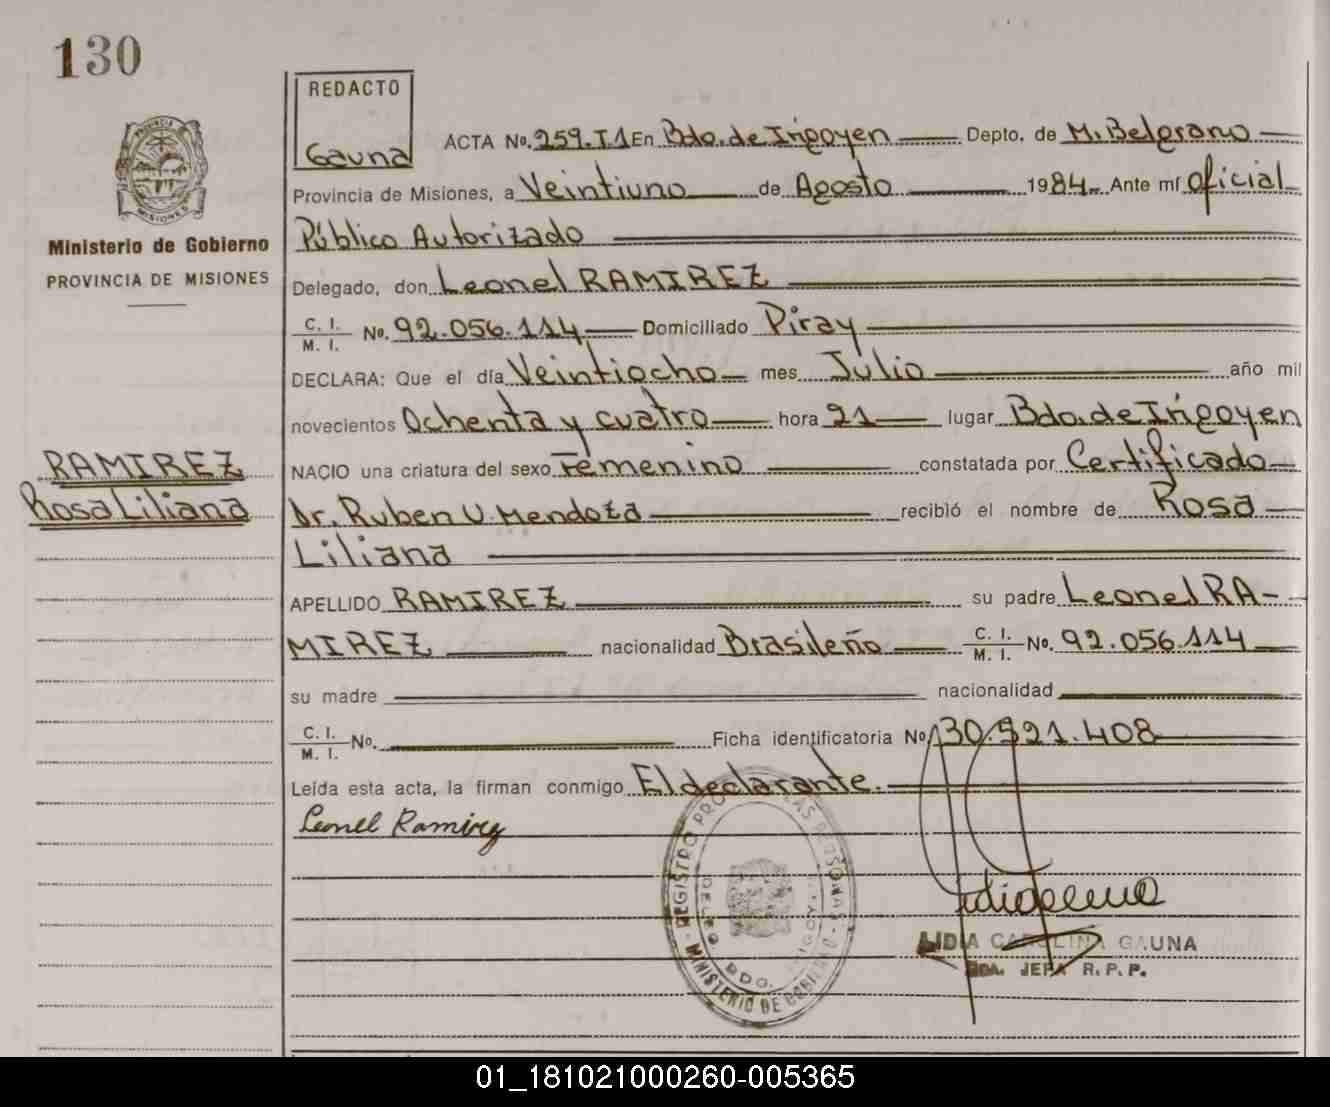 130
REDACTO
Gauna
PROVINCIA
MISIONES
Ministerio de Gobierno
PROVINCIA DE MISIONES
ACTA No. 259.T1 En Bdo. de Irigoyen Depto. de M. Belgrano
Provincia de Misiones, a Veintiuno de Agosto 1984 Ante mí Oficial
Público Autorizado
Delegado, don Leonel RAMIREZ
C. I. M. I. No. 92.056.114 Domiciliado Piray
DECLARA: Que el día Veintiocho mes Julio año mil
novecientos Ochenta y cuatro hora 21 lugar Bdo. de Irigoyen
RAMIREZ
Rosa Liliana
NACIO una criatura del sexo Femenino constatada por Certificado
Dr. Ruben U. Mendoza recibió el nombre de Rosa
Liliana
APELLIDO RAMIREZ su padre Leonel RA-
MIREZ nacionalidad Brasileño C. I. M. I. No. 92.056.114
su madre nacionalidad
C. I. M. I. No. Ficha identificatoria No. 30.921.408
Leída esta acta, la firman conmigo El declarante.
Leonel Ramirez
REGISTRO PERSONAS
BDO.
MINISTERIO DE GOBIERNO
LIDIA CAROLINA GAUNA
JEFA R. P. P.
01_181021000260-005365